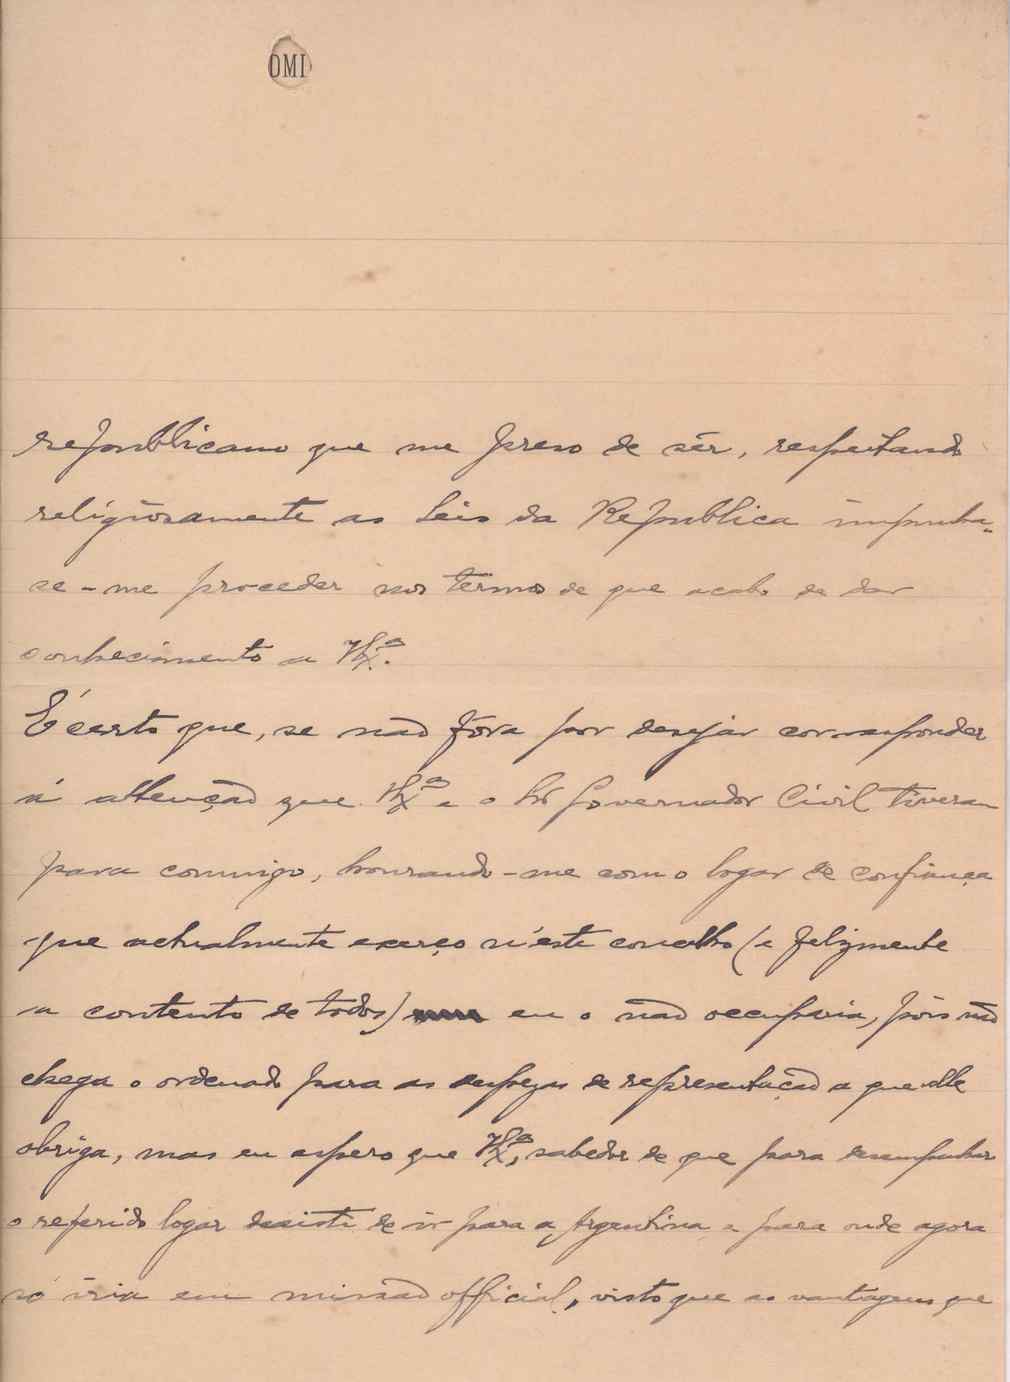 OMI
republicano que me preso de sêr, respeitando
religiosamente as Leis da Republica impunha-
se-me proceder nos termos de que acabo de dar
conhecimento a V. Exª.
É certo que, se não fôra por desejar corresponder
á attenção que V. Exª e o Sr Governador Civil tiveram
para commigo, honrando-me com o logar de confiança
que actualmente exerço n'este concelho (e felizmente
a contento de todos) eu o não occuparia, pois não
chega o ordenado para as despezas de representação a que elle
obriga, mas eu espero que V. Exª, sabedor de que para desempenhar
o referido logar desisti de ir para a Argentina e para onde agora
só iria em missão official, visto que as vantagens que